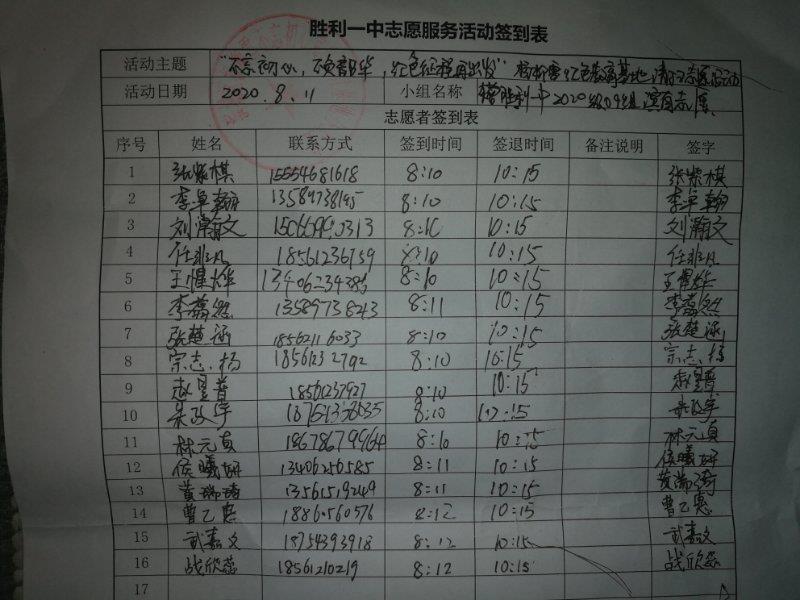 胜利一中志愿服务活动签到表
活动主题 "不忘初心，不负韶华，红色征程再出发" 红色教育基地 志愿活动
活动日期 2020.8.11 小组名称 胜利一中2020级 志愿
志愿者签到表
序号 姓名 联系方式 签到时间 签退时间 备注说明 签字
1 张紫棋 15554681618 8:10 10:15 张紫棋
2 李卓翰 8:10 10:15 李卓翰
3 刘瀚文 8:10 10:15 刘瀚文
4 任非凡 18561236759 8:10 10:15 任非凡
5 王惺烨 13406234385 8:10 10:15 王惺烨
6 李蕴 13589738243 8:11 10:15 李蕴
7 张楚涵 18562116033 8:10 10:15 张楚涵
8 宗志杨 18561232792 8:10 10:15 宗志杨
9 赵 普 18561237927 8:10 10:15 赵 普
10 8:10 10:15
11 林元贞 18678679964 8:10 10:15 林元贞
12 侯曦妍 13406256585 8:11 10:15 侯曦妍
13 黄瑞琦 13561519249 8:11 10:15 黄瑞琦
14 曹乙惠 8:12 10:15 曹乙惠
15 武嘉文 18754393918 8:12 10:15 武嘉文
16 战欣蕊 18561210219 8:12 10:15 战欣蕊
17